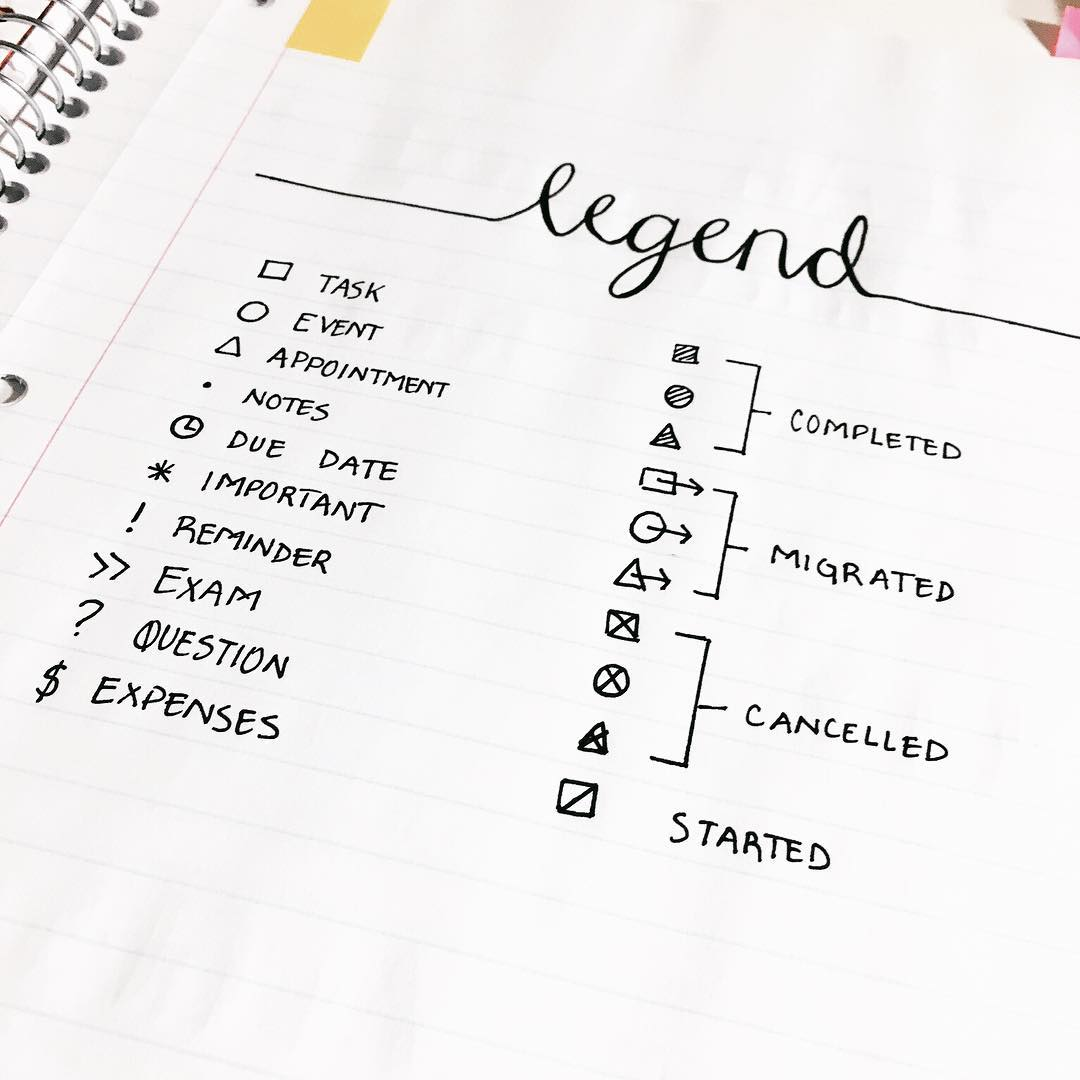 legend
□ TASK
○ EVENT
△ APPOINTMENT
• NOTES
DUE DATE
* IMPORTANT
! REMINDER
>> EXAM
? QUESTION
$ EXPENSES
COMPLETED
MIGRATED
CANCELLED
STARTED